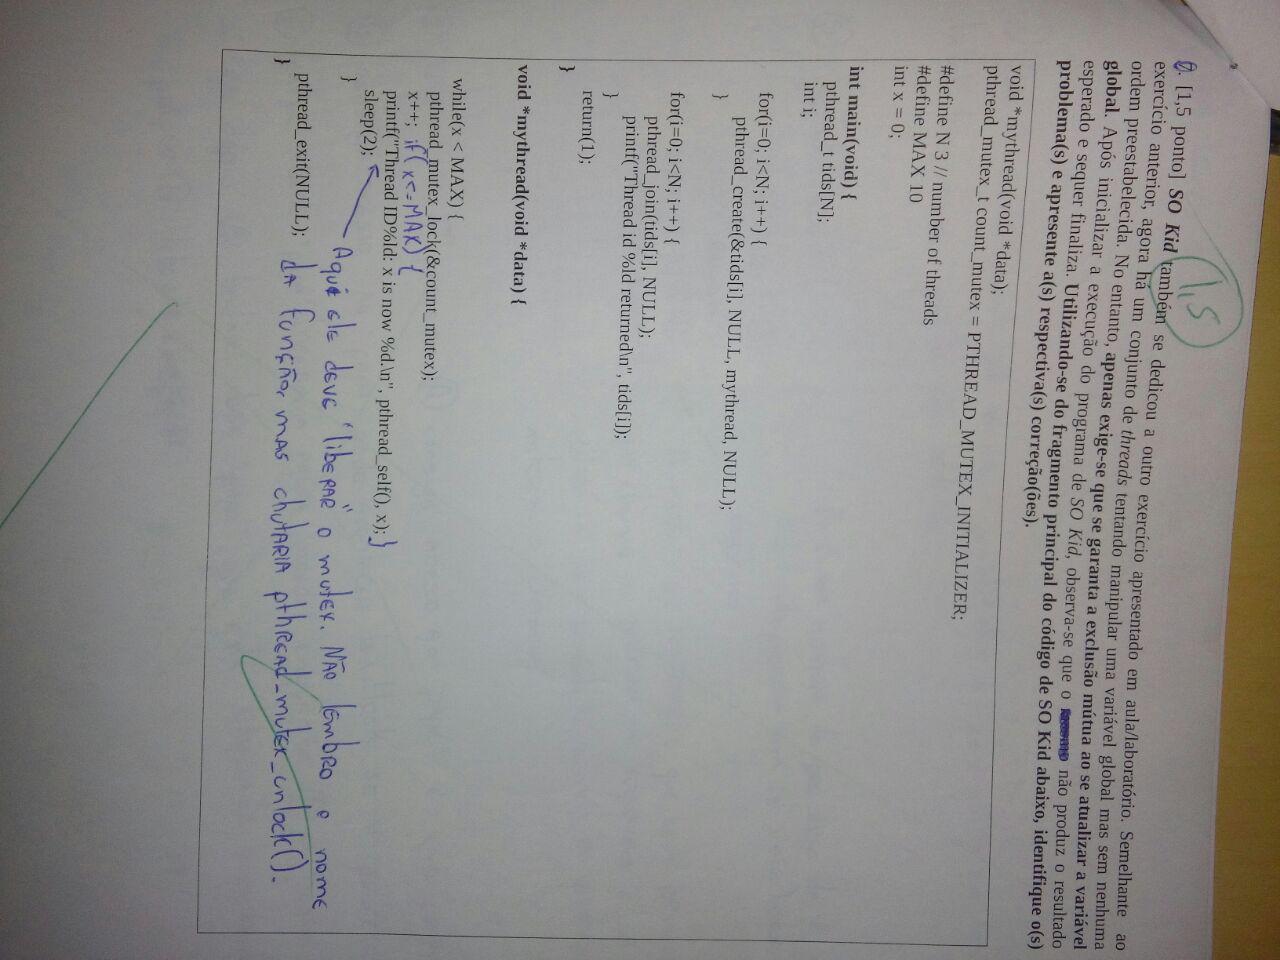 1,5
0. [1,5 ponto] SO Kid também se dedicou a outro exercício apresentado em aula/laboratório. Semelhante ao
exercício anterior, agora há um conjunto de threads tentando manipular uma variável global mas sem nenhuma
ordem preestabelecida. No entanto, apenas exige-se que se garanta a exclusão mútua ao se atualizar a variável
global. Após inicializar a execução do programa de SO Kid, observa-se que o não produz o resultado
esperado e sequer finaliza. Utilizando-se do fragmento principal do código de SO Kid abaixo, identifique o(s)
problema(s) e apresente a(s) respectiva(s) correção(ões).
void *mythread(void *data);
pthread_mutex_t count_mutex = PTHREAD_MUTEX_INITIALIZER;
#define N 3 // number of threads
#define MAX 10
int x = 0;
int main(void) {
pthread_t tids[N];
int i;
for(i=0; i<N; i++) {
pthread_create(&tids[i], NULL, mythread, NULL);
}
for(i=0; i<N; i++) {
pthread_join(tids[i], NULL);
printf("Thread id %ld returned\n", tids[i]);
}
return(1);
}
void *mythread(void *data) {
while(x < MAX) {
pthread_mutex_lock(&count_mutex);
x++; if(x<=MAX) {
printf("Thread ID%ld: x is now %d.\n", pthread_self(), x); }
sleep(2);
}
Aqui ele deve "liberar" o mutex. Não lembro o nome
pthread_exit(NULL); da função, mas chutaria pthread_mutex_unlock().
}